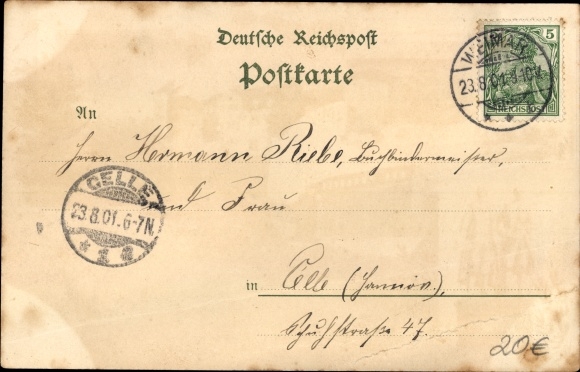 Deutsche Reichspost
Postkarte
5
REICHSPOST
WEIMAR
23.8.01.9-10V.
An
Herrn Hermann Riebe, Buchbindermeister,
und Frau
CELLE
23.8.01.6-7N.
* 1 d
in Celle (Hannov.)
Schuhstraße 47.
20€